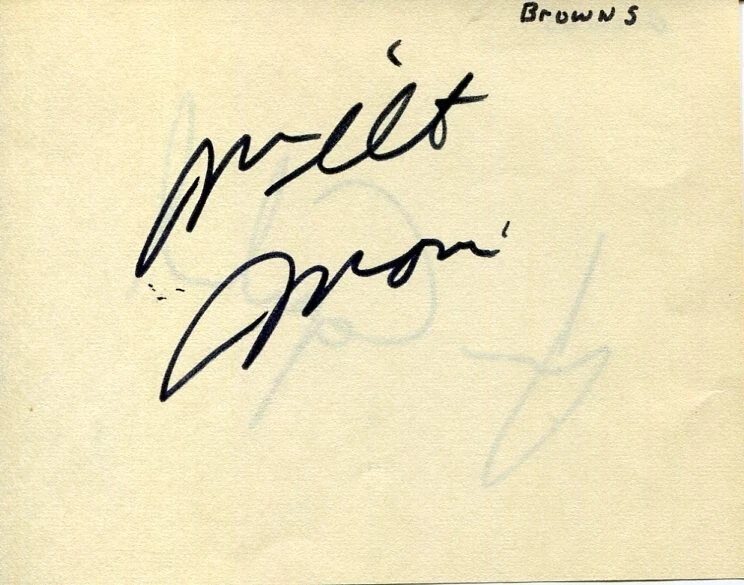 Browns
Milt
Morin